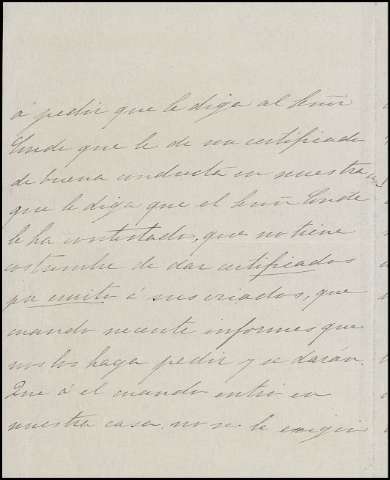 á pedir que le diga al Señor
Conde que le de un certificado
de buena conducta en nuestra
que le diga que el Señor Conde
le ha contestado, que no tiene
costumbre de dar certificados
por escrito á sus criados, que
cuando necesite informes que
nos los haga pedir y se darán.
Que á el cuando entró en
nuestra casa no se le exigió